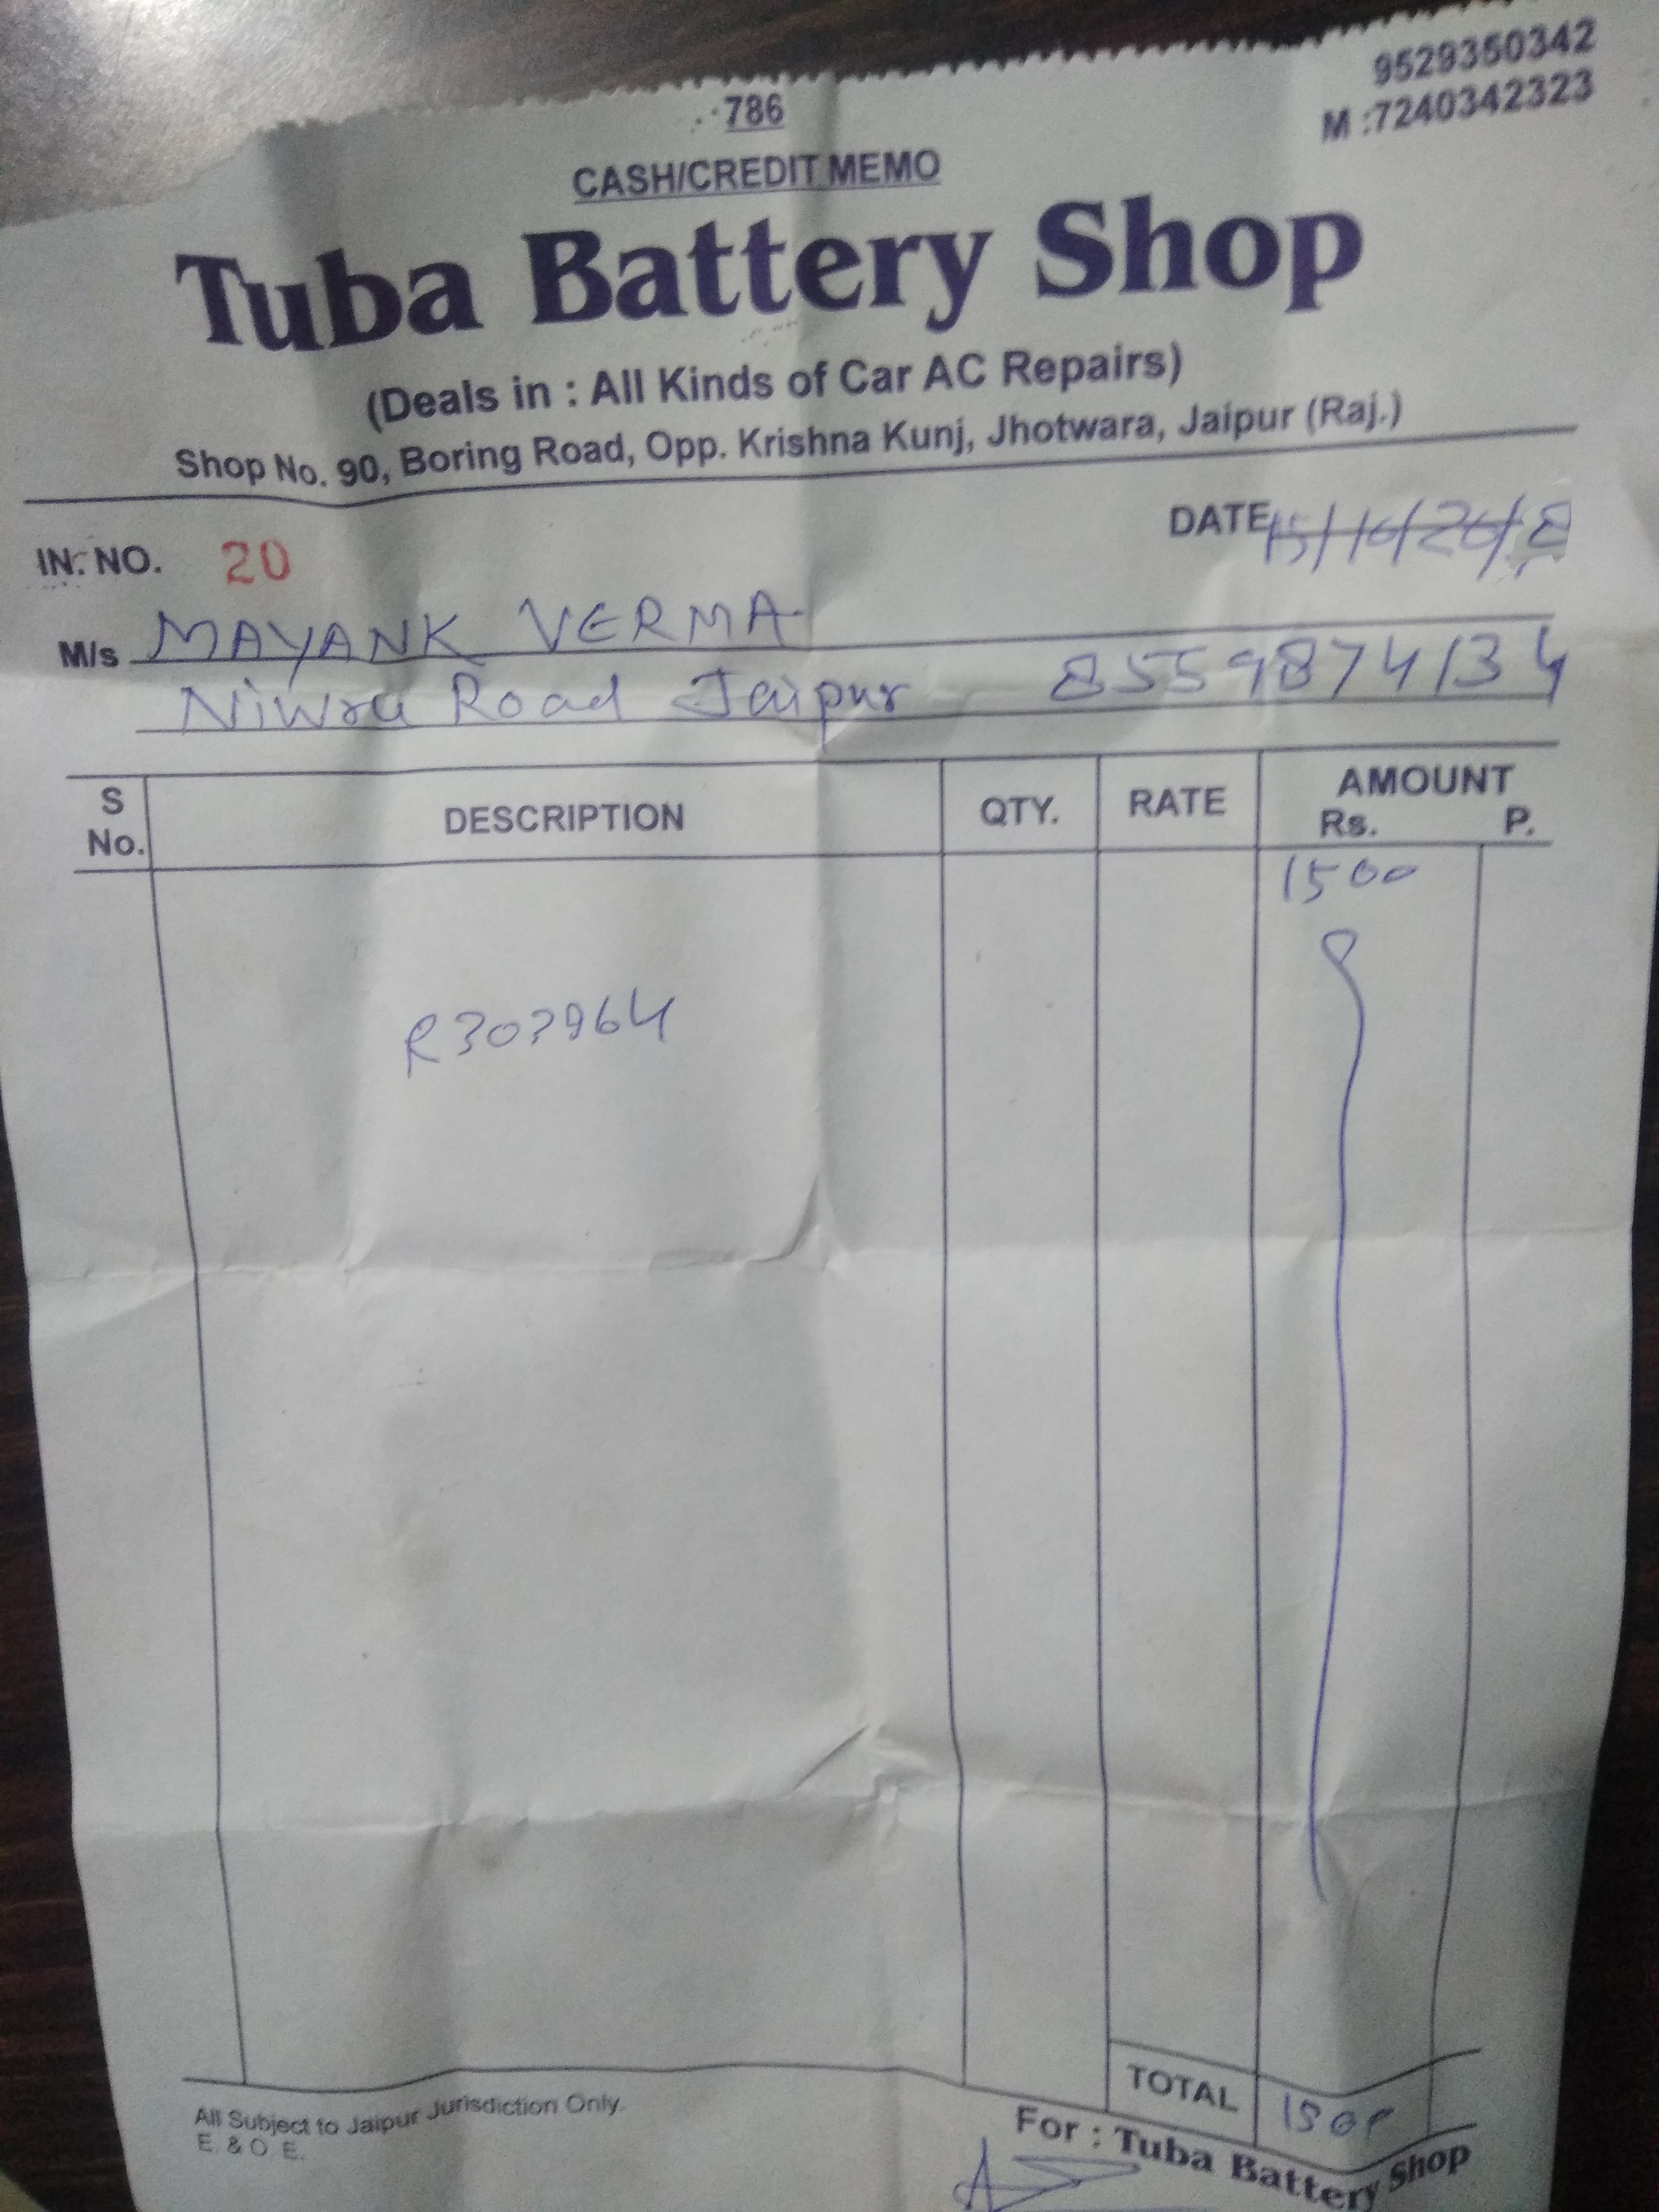 786
9529350342
M :7240342323
CASH/CREDIT MEMO
Tuba Battery Shop
(Deals in : All Kinds of Car AC Repairs)
Shop No. 90, Boring Road, Opp. Krishna Kunj, Jhotwara, Jaipur (Raj.)
IN. NO. 20 DATE
M/s MAYANK VERMA
Niwru Road Jaipur 8559874134
S No. DESCRIPTION QTY. RATE AMOUNT Rs. P.
1500
R303964
TOTAL 1500
All Subject to Jaipur Jurisdiction Only.
E. & O. E.
For : Tuba Battery Shop